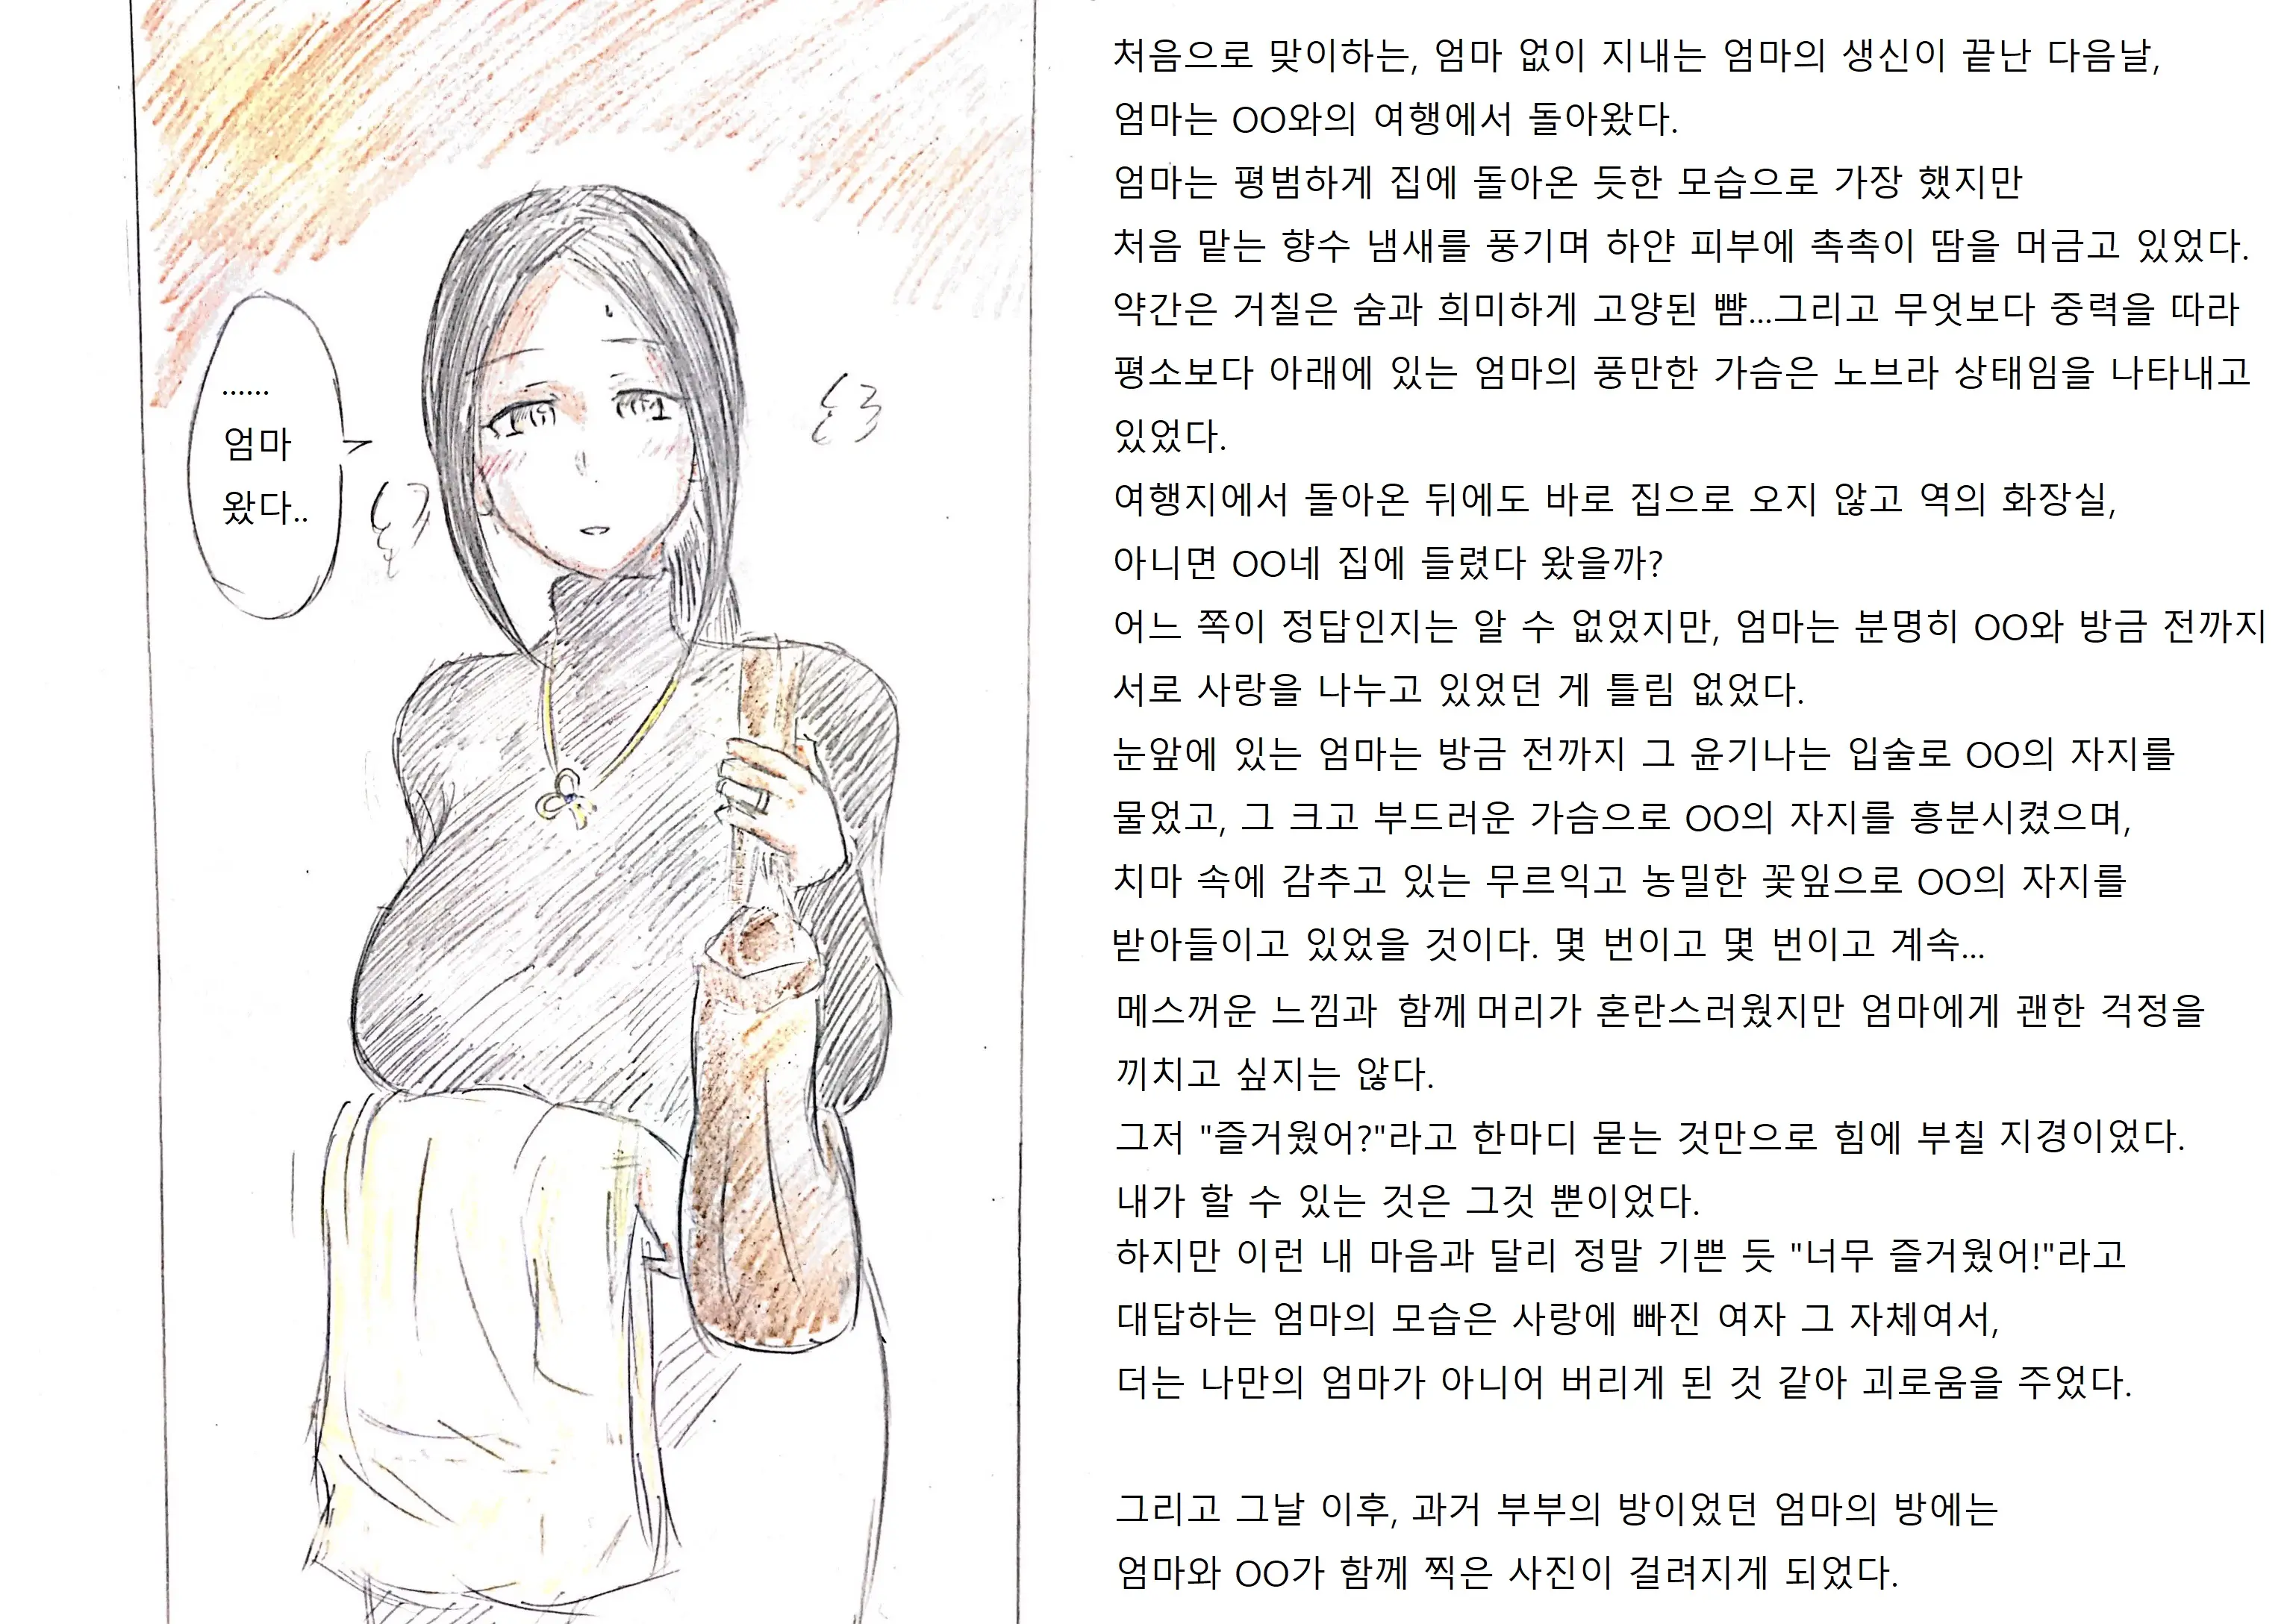 ......
엄마
왔다..
처음으로 맞이하는, 엄마 없이 지내는 엄마의 생신이 끝난 다음날,
엄마는 OO와의 여행에서 돌아왔다.
엄마는 평범하게 집에 돌아온 듯한 모습으로 가장 했지만
처음 맡는 향수 냄새를 풍기며 하얀 피부에 촉촉이 땀을 머금고 있었다.
약간은 거칠은 숨과 희미하게 고양된 뺨...그리고 무엇보다 중력을 따라
평소보다 아래에 있는 엄마의 풍만한 가슴은 노브라 상태임을 나타내고
있었다.
여행지에서 돌아온 뒤에도 바로 집으로 오지 않고 역의 화장실,
아니면 OO네 집에 들렸다 왔을까?
어느 쪽이 정답인지는 알 수 없었지만, 엄마는 분명히 OO와 방금 전까지
서로 사랑을 나누고 있었던 게 틀림 없었다.
눈앞에 있는 엄마는 방금 전까지 그 윤기나는 입술로 OO의 자지를
물었고, 그 크고 부드러운 가슴으로 OO의 자지를 흥분시켰으며,
치마 속에 감추고 있는 무르익고 농밀한 꽃잎으로 OO의 자지를
받아들이고 있었을 것이다. 몇 번이고 몇 번이고 계속...
메스꺼운 느낌과 함께 머리가 혼란스러웠지만 엄마에게 괜한 걱정을
끼치고 싶지는 않다.
그저 "즐거웠어?"라고 한마디 묻는 것만으로 힘에 부칠 지경이었다.
내가 할 수 있는 것은 그것 뿐이었다.
하지만 이런 내 마음과 달리 정말 기쁜 듯 "너무 즐거웠어!"라고
대답하는 엄마의 모습은 사랑에 빠진 여자 그 자체여서,
더는 나만의 엄마가 아니어 버리게 된 것 같아 괴로움을 주었다.
그리고 그날 이후, 과거 부부의 방이었던 엄마의 방에는
엄마와 OO가 함께 찍은 사진이 걸려지게 되었다.